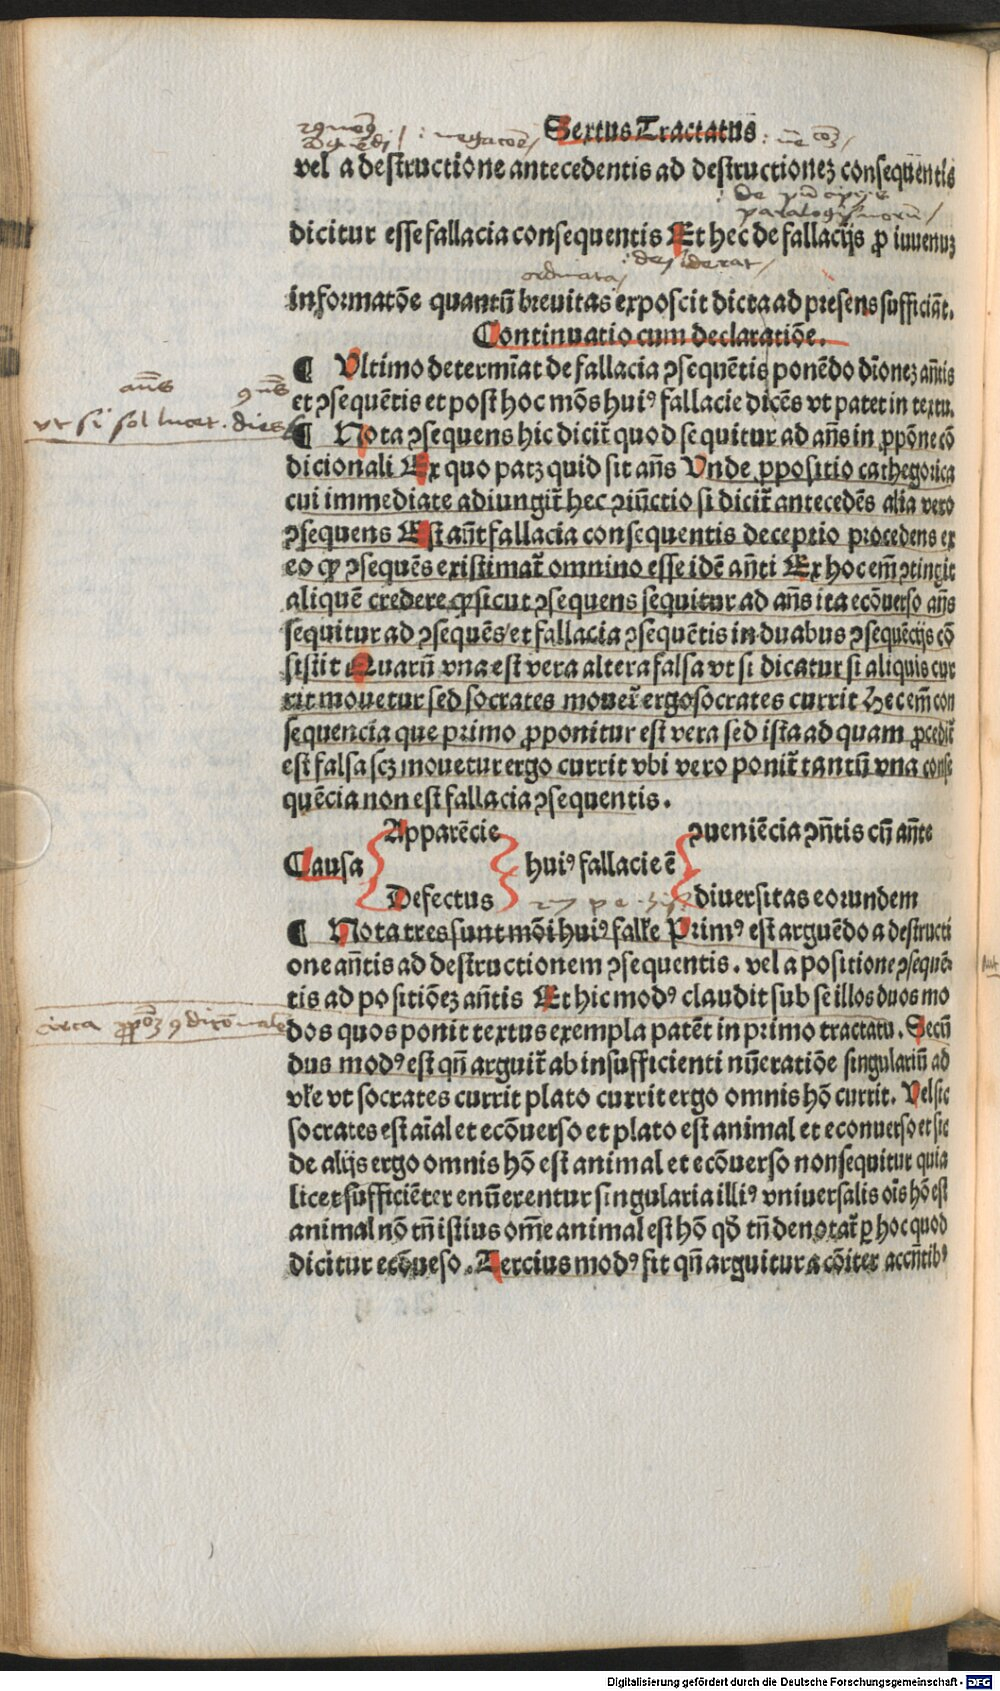 Sextus Tractatus
vel a destructione antecedentis ad destructionez consequentis
dicitur esse fallacia consequentis Et hec de fallacijs ꝓ iuuenuz
desiderat
ordinata
informatōe quantū breuitas exposcit dicta ad presens sufficiāt.
Continuatio cum declaratiōe.
¶ Vltimo determīat de fallacia ꝯsequētis ponēdo dīonez añtis
et ꝯsequētis et post hoc mōs huiꝰ fallacie dicēs vt patet in textu.
añs ꝯñs
vt si sol lucet. dies
¶ Nota ꝯsequens hic dicit̄ quod sequitur ad añs in ꝓpōne cō
dicionali Ex quo patz quid sit añs Vnde ꝓpositio cathegorica
cui immediate adiungit̄ hec ꝯiūctio si dicit̄ antecedēs alia vero
ꝯsequens Est añt fallacia consequentis deceptio procedens ex
eo ꝙ ꝯsequēs existimat̄ omnino esse idē añti Ex hoc em̄ ꝯtingit
aliquē credere ꝙ sicut ꝯsequens sequitur ad añs ita ecōuerso añs
sequitur ad ꝯsequēs et fallacia ꝯsequētis in duabus ꝯsequēcijs cō
sistit Quarū vna est vera altera falsa vt si dicatur si aliquis cur
rit mouetur sed socrates mouet̄ ergo socrates currit Hec em̄ con
sequencia que primo ꝓponitur est vera sed ista ad quam ꝓcedit̄
est falsa scz mouetur ergo currit vbi vero ponit̄ tantū vna conse
quēcia non est fallacia ꝯsequentis.
Apparēcie ꝯueniēcia ꝯñtis cū añte
Causa huiꝰ fallacie ē
Defectus diuersitas eorundem
¶ Nota tres sunt mōi huiꝰ falle Primꝰ est arguēdo a destructi
one añtis ad destructionem ꝯsequentis. vel a positione ꝯsequē
tis ad positiōez añtis Et hic modꝰ claudit sub se illos duos mo
circa ꝓpōz ꝯdicōnale
dos quos ponit textus exempla patēt in primo tractatu. Secū
dus modꝰ est qñ arguit̄ ab insufficienti nūeratiōe singulariū ad
vle vt socrates currit plato currit ergo omnis hō currit. Vel sic
socrates est aīal et ecōuerso et plato est animal et econuerso et sic
de alijs ergo omnis hō est animal et ecōuerso non sequitur quia
licet sufficiēter enūerentur singularia illiꝰ vniuersalis oīs hō est
animal nō tñ istius om̄e animal est hō qd̄ tñ denotat̄ ꝑ hoc quod
dicitur ecōueso. Tercius modꝰ fit qñ arguitur a cōiter accñtibꝰ
Digitalisierung gefördert durch die Deutsche Forschungsgemeinschaft - DFG